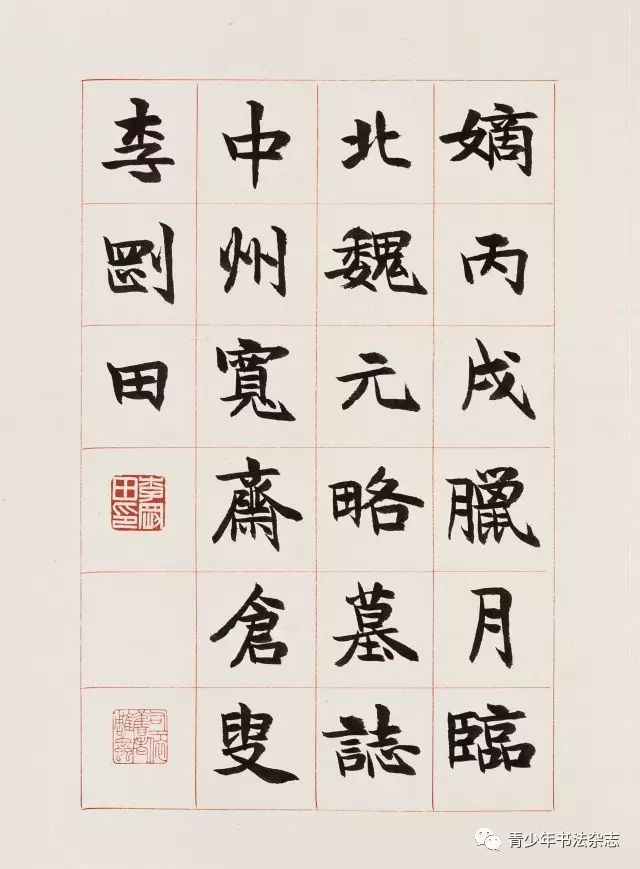 嫡丙戌臘月臨
北魏元略墓誌
中州寬齋倉叟
李剛田
李剛田印
青少年书法杂志